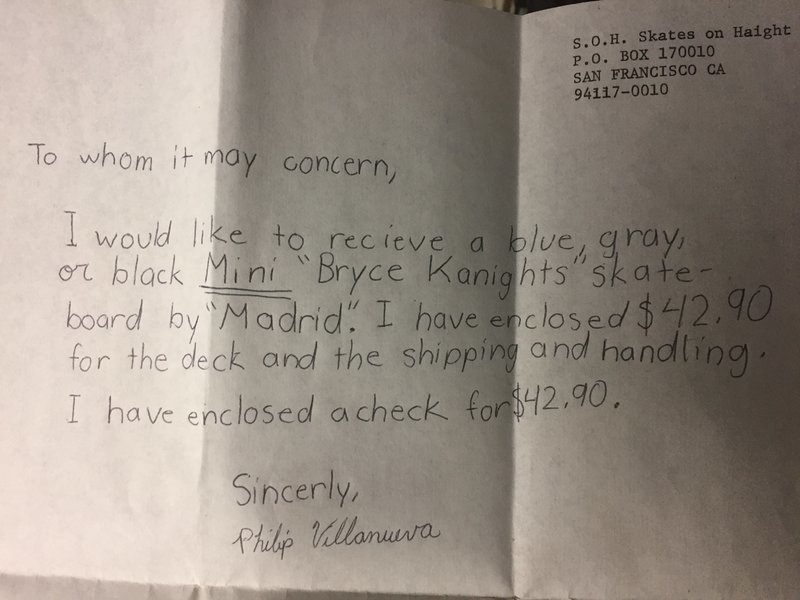 S.O.H. Skates on Haight
P.O. BOX 170010
SAN FRANCISCO CA
94117-0010
To whom it may concern,
I would like to recieve a blue, gray,
or black Mini "Bryce Kanights" skate-
board by "Madrid". I have enclosed $42.90
for the deck and the shipping and handling.
I have enclosed a check for $42.90.
Sincerly,
Philip Villanueva